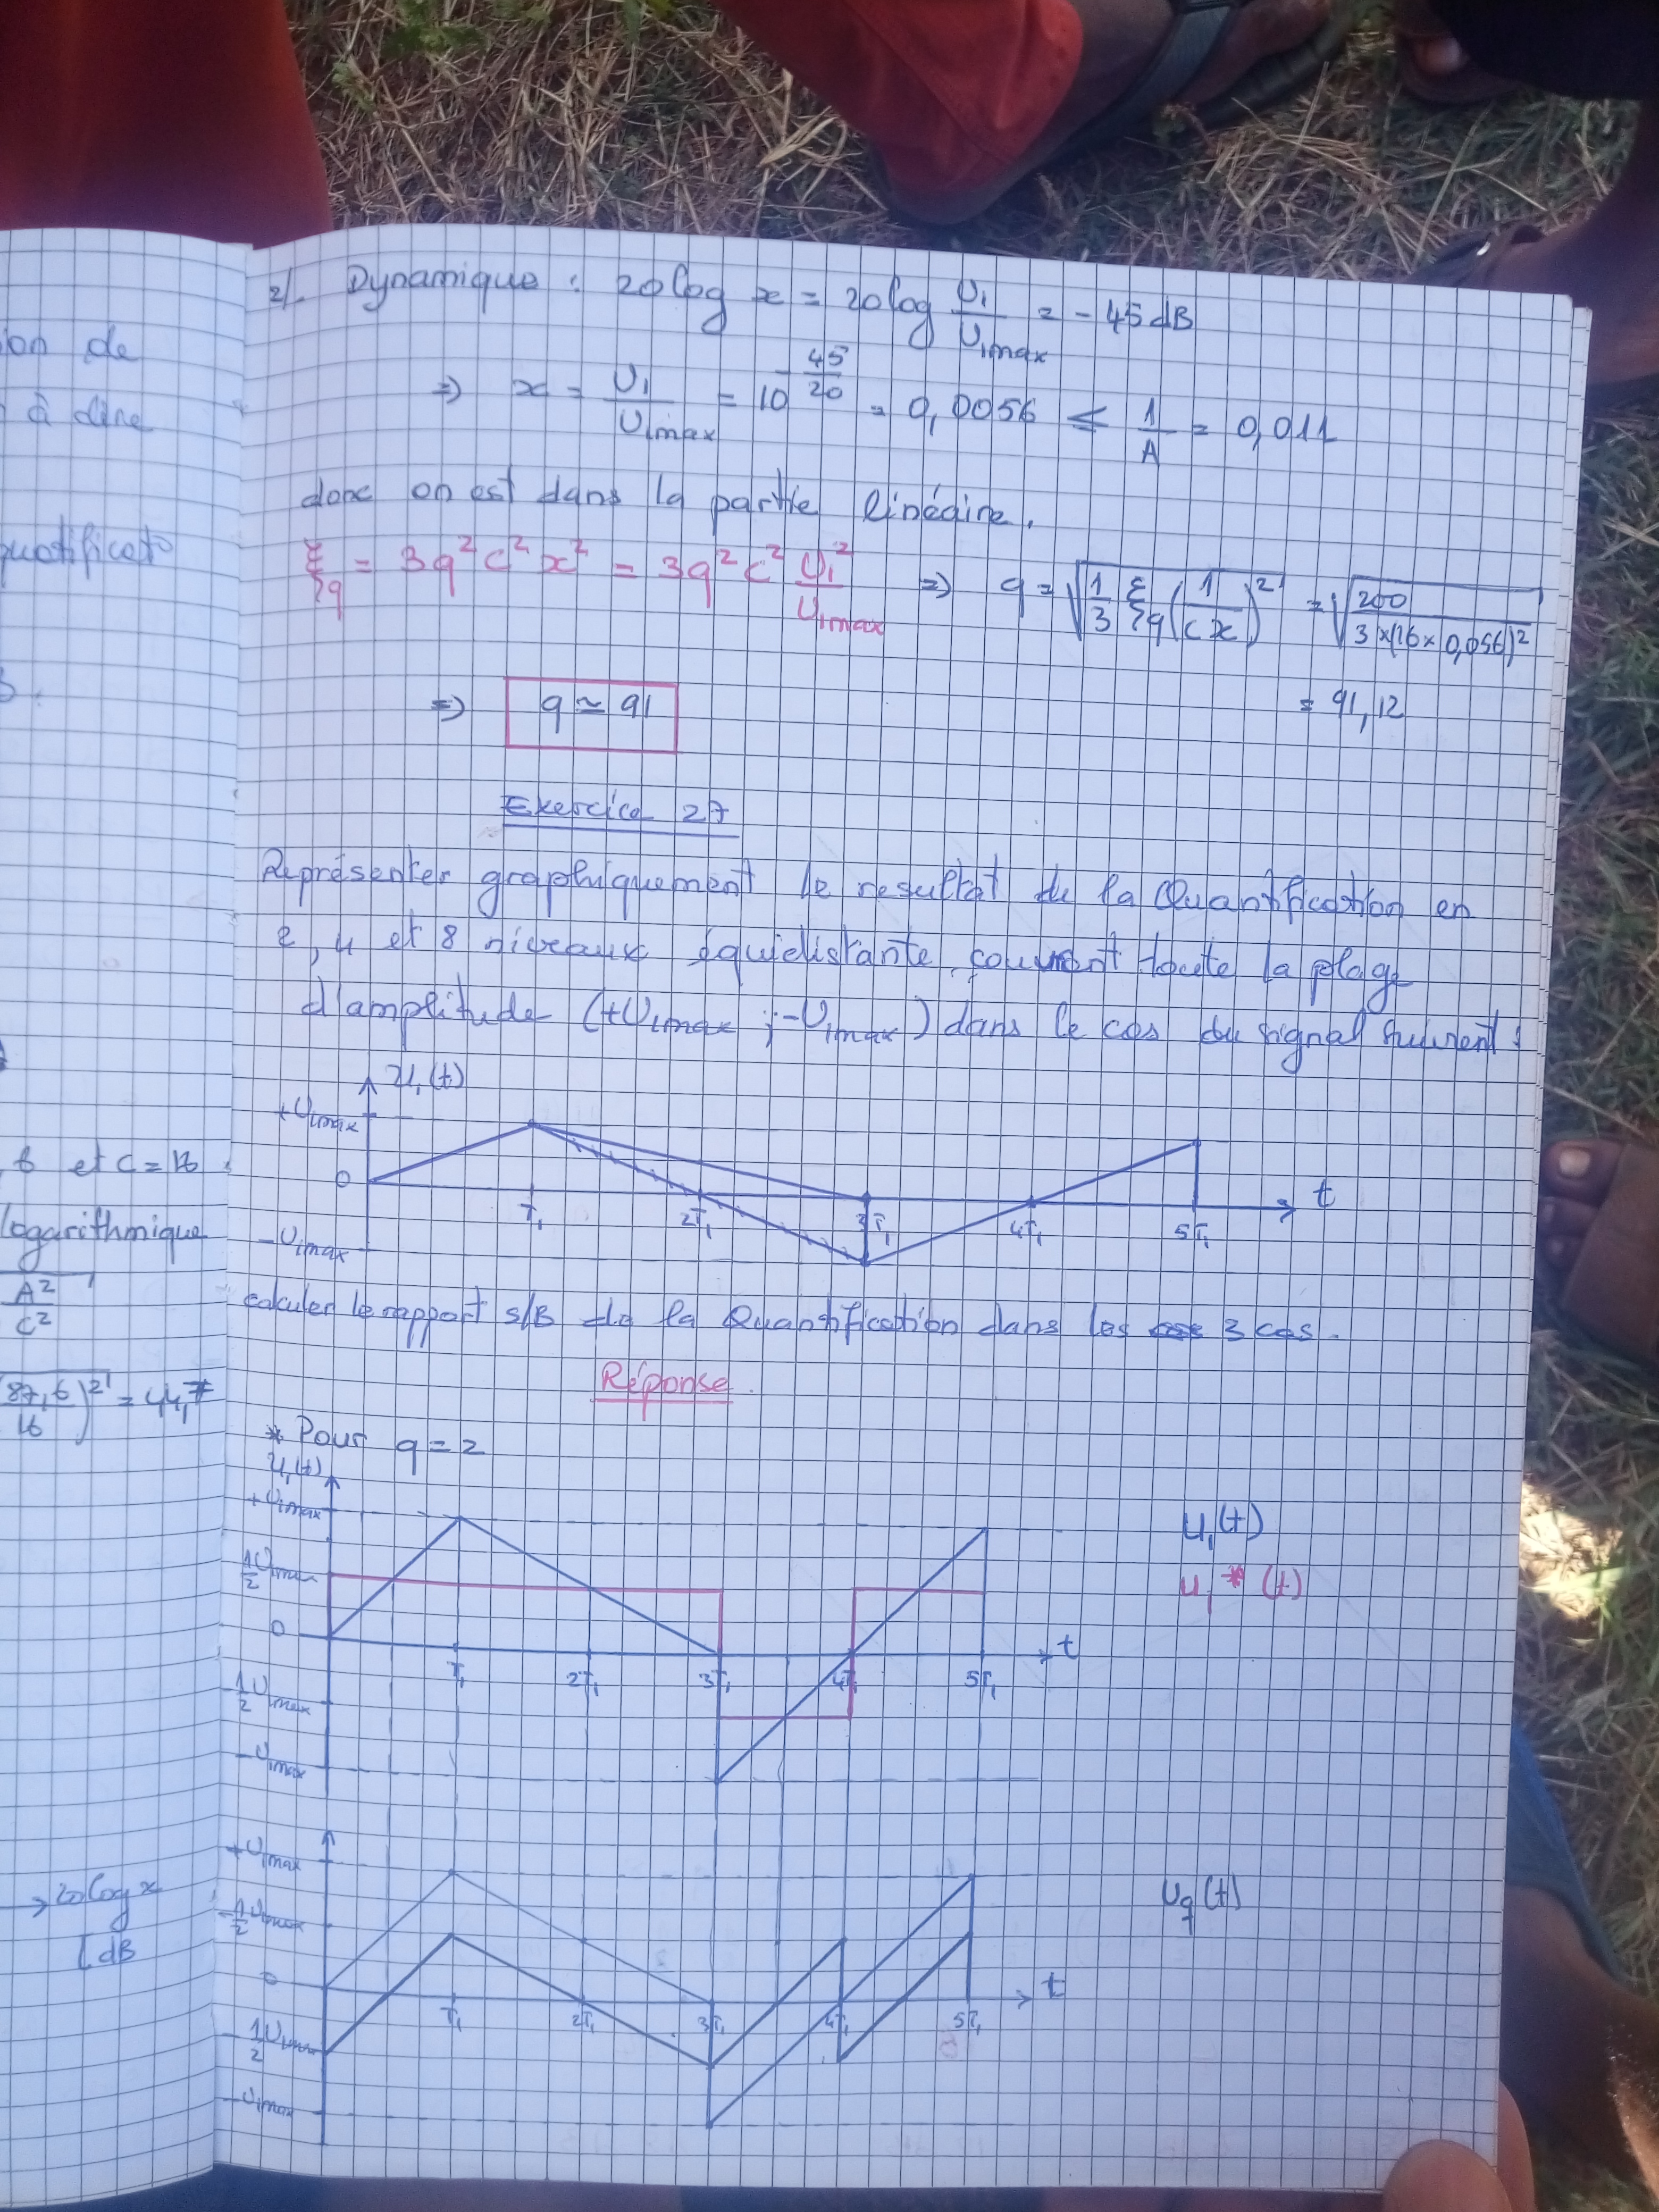 on de
à dire
quotificato
6 et C = 16
logarithmique
A²
C²
(87,6 / 16)² = 44,7
→ 20 log x
[dB
2/. Dynamique : 20 log x = 20 log U₁/U₁max = - 45 dB
=> x = U₁/U₁max = 10^-45/20 = 0,0056 ≤ 1/A = 0,011
donc on est dans la partie linéaire.
ξq = 3q²c²x² = 3q²c² U₁²/U₁max => q = √(1/3 ξq (1/cx)²) = √(200/3×(16×0,056)²)
=> q ≃ 91 = 91,12
Exercice 27
Représenter graphiquement le resultat de la Quantification en
2, 4 et 8 niveaux équidistante couvrant toute la plage
d'amplitude (+U₁max ; -U₁max) dans le cas du signal suivent :
U₁(t)
+U₁max
0
-U₁max
T₁ 2T₁ 3T₁ 4T₁ 5T₁ t
calculer le rapport S/B de la Quantification dans les 3 cas.
Réponse
* Pour q = 2
U₁(t)
+U₁max
½U₁max
0
-½U₁max
-U₁max
T₁ 2T₁ 3T₁ 4T₁ 5T₁ t
U₁(t)
U₁*(t)
+U₁max
½U₁max
0
-½U₁max
-U₁max
T₁ 2T₁ 3T₁ 4T₁ 5T₁ t
Uq(t)